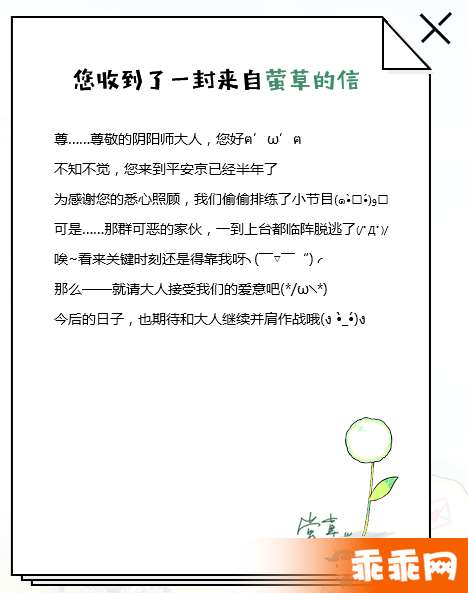 您收到了一封来自萤草的信
尊……尊敬的阴阳师大人，您好ฅ′ω′ฅ
不知不觉，您来到平安京已经半年了
为感谢您的悉心照顾，我们偷偷排练了小节目(๑•̀□•́)و□
可是……那群可恶的家伙，一到上台都临阵脱逃了(/"Д")/
唉~看来关键时刻还是得靠我呀╮(￣▽￣")╭
那么——就请大人接受我们的爱意吧(*/ω＼*)
今后的日子，也期待和大人继续并肩作战哦(ง •̀_•́)ง
萤草
乖乖网